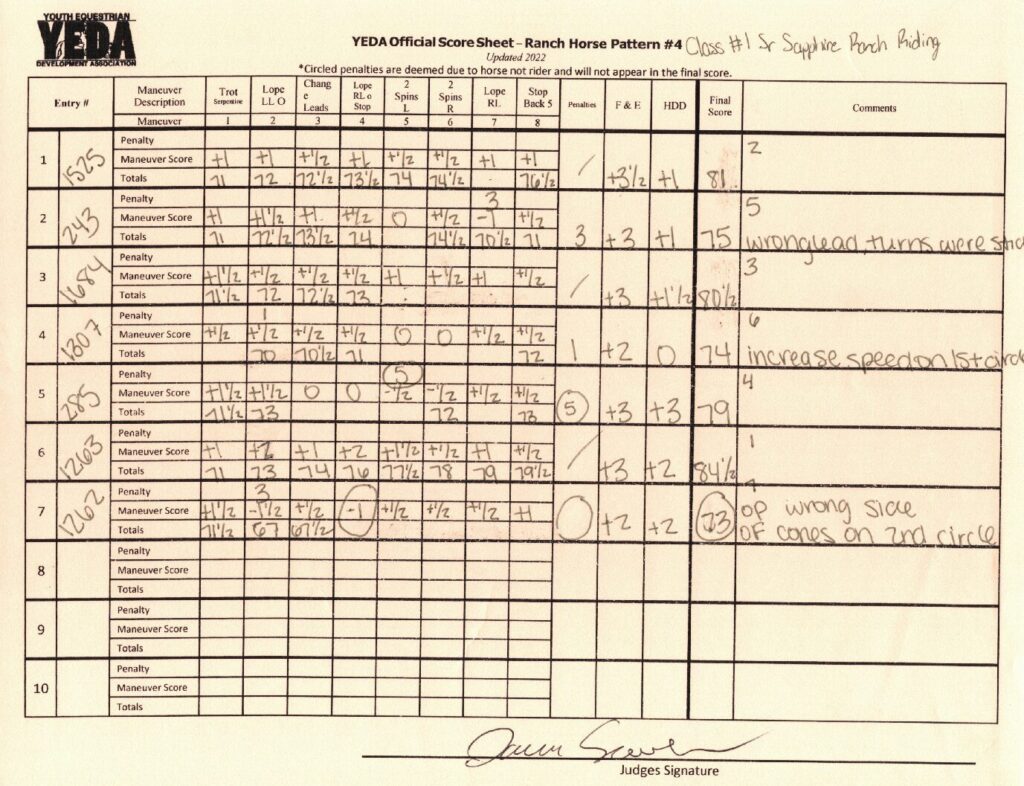 YOUTH EQUESTRIAN
YEDA
DEVELOPMENT ASSOCIATION
YEDA Official Score Sheet – Ranch Horse Pattern #4 Class #1 Sr Sapphire Ranch Riding
Updated 2022
*Circled penalties are deemed due to horse not rider and will not appear in the final score.
Entry # Maneuver Description Trot Serpentine Lope LL O Chang e Leads Lope RL o Stop 2 Spins L 2 Spins R Lope RL Stop Back 5 Penalties F & E HDD Final Score Comments
Maneuver 1 2 3 4 5 6 7 8
Penalty 2
1 1525 Maneuver Score +1 +1 +1/2 +1 +1/2 +1/2 +1 +1
Totals 71 72 72 1/2 73 1/2 74 74 1/2 76 1/2 / +3 1/2 +1 81
Penalty 3 5
2 243 Maneuver Score +1 +1 1/2 +1 +1/2 0 +1/2 -1 +1/2
Totals 71 72 1/2 73 1/2 74 74 1/2 70 1/2 71 3 +3 +1 75 wrong lead, turns were
Penalty 3
3 1684 Maneuver Score +1 1/2 +1/2 +1/2 +1/2 +1 +1/2 +1 +1/2
Totals 71 1/2 72 72 1/2 73 / +3 +1 1/2 80 1/2
Penalty 1 6
4 1307 Maneuver Score +1/2 +1/2 +1/2 +1/2 0 0 +1/2 +1/2
Totals 70 70 1/2 71 72 1 +2 0 74 increase speed on 1st circle
Penalty 5 4
5 285 Maneuver Score +1 1/2 +1 1/2 0 0 -1/2 -1/2 +1/2 +1/2
Totals 71 1/2 73 72 73 5 +3 +3 79
Penalty 1
6 1263 Maneuver Score +1 +2 +1 +2 +1 1/2 +1/2 +1 +1/2
Totals 71 73 74 76 77 1/2 78 79 79 1/2 / +3 +2 84 1/2
Penalty 3 7
7 1262 Maneuver Score +1 1/2 -1 1/2 +1/2 -1 +1/2 +1/2 +1/2 +1 op wrong side
Totals 71 1/2 67 67 1/2 +2 +2 73 OF cones on 2nd circle
Penalty
8 Maneuver Score
Totals
Penalty
9 Maneuver Score
Totals
Penalty
10 Maneuver Score
Totals
Judges Signature